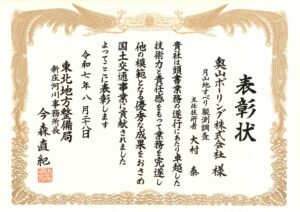 表彰状
奥山ボーリング株式会社 様
月山地すべり観測調査
主任技術者 大村 泰
貴社は頭書業務の遂行にあたり卓越した
技術力と責任感をもって業務を完遂し
他の模範となる優秀な成果をおさめ
国土交通事業に貢献されました
よってここに表彰します
令和七年八月二十日
東北地方整備局
新庄河川事務所長
今森直紀